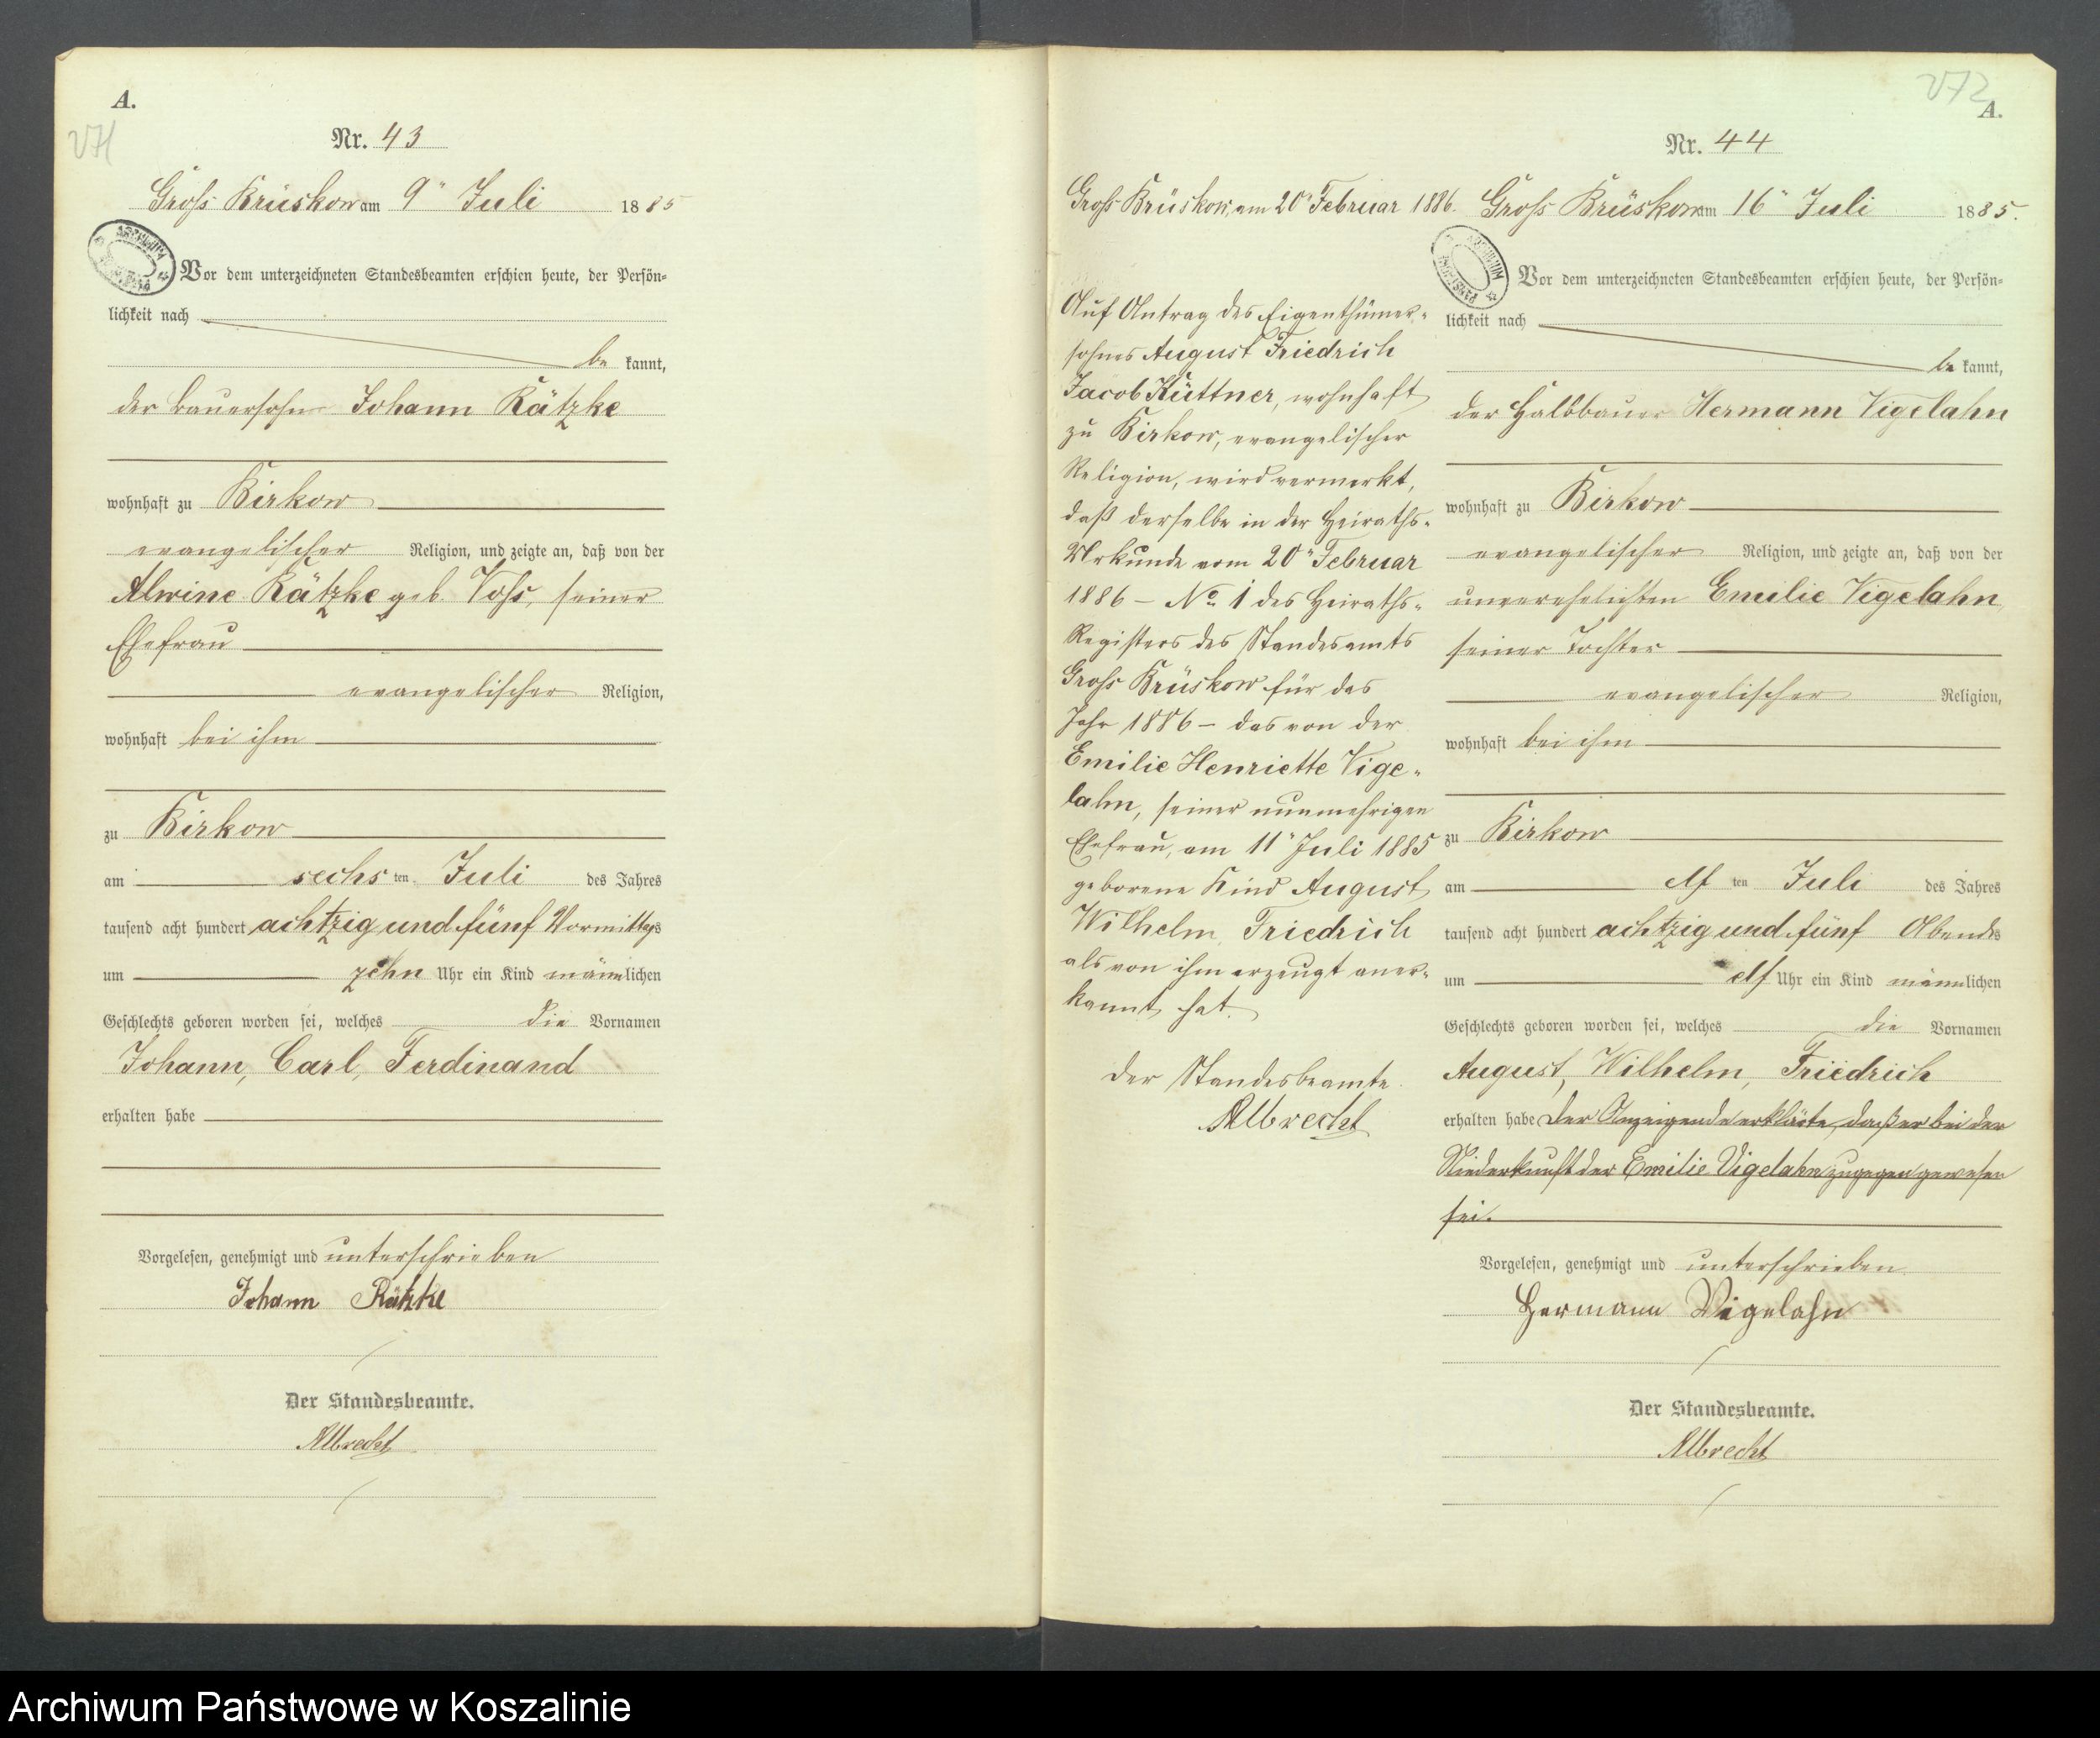 A.
271
Nr. 43
Gross Brüskow am 9" Juli 1885
ARCHIWUM
Vor dem unterzeichneten Standesbeamten erschien heute, der Persön-
lichkeit nach
be kannt,
der Bauersohn Johann Rätzke
wohnhaft zu Birkow
evangelischer Religion, und zeigte an, daß von der
Alwine Rätzke geb. Voss, seiner
Ehefrau
evangelischer Religion,
wohnhaft bei ihm
zu Birkow
am sechs ten Juli des Jahres
tausend acht hundert achtzig und fünf Vormittags
um zehn Uhr ein Kind männlichen
Geschlechts geboren worden sei, welches die Vornamen
Johann, Carl, Ferdinand
erhalten habe
Vorgelesen, genehmigt und unterschrieben
Johann Rätzke
Der Standesbeamte.
Albrecht
Gross Brüskow, am 20" Februar 1886.
Auf Antrag des Eigenthümer-
sohnes August Friedrich
Jacob Küttner, wohnhaft
zu Birkow, evangelischer
Religion, wird vermerkt,
daß derselbe in der Heiraths-
Urkunde vom 20" Februar
1886 – No 1 des Heiraths-
Registers des Standesamts
Gross Brüskow für das
Jahr 1886 – das von der
Emilie Henriette Vige-
lahn, seiner nunmehrigen
Ehefrau, am 11" Juli 1885
geborene Kind August
Wilhelm Friedrich
als von ihm erzeugt aner-
kannt hat.
Der Standesbeamte.
Albrecht
272
A.
Nr. 44
Gross Brüskow am 16" Juli 1885.
ARCHIWUM
Vor dem unterzeichneten Standesbeamten erschien heute, der Persön-
lichkeit nach
be kannt,
der Halbbauer Hermann Vigelahn
wohnhaft zu Birkow
evangelischer Religion, und zeigte an, daß von der
unverehelichten Emilie Vigelahn,
seiner Tochter
evangelischer Religion,
wohnhaft bei ihm
zu Birkow
am elf ten Juli des Jahres
tausend acht hundert achtzig und fünf Abends
um elf Uhr ein Kind männlichen
Geschlechts geboren worden sei, welches die Vornamen
August, Wilhelm, Friedrich
erhalten habe Der Anzeigende erklärte, daß er bei der
Niederkunft der Emilie Vigelahn zugegen gewesen
sei.
Vorgelesen, genehmigt und unterschrieben
Hermann Vigelahn
Der Standesbeamte.
Albrecht
Archiwum Państwowe w Koszalinie